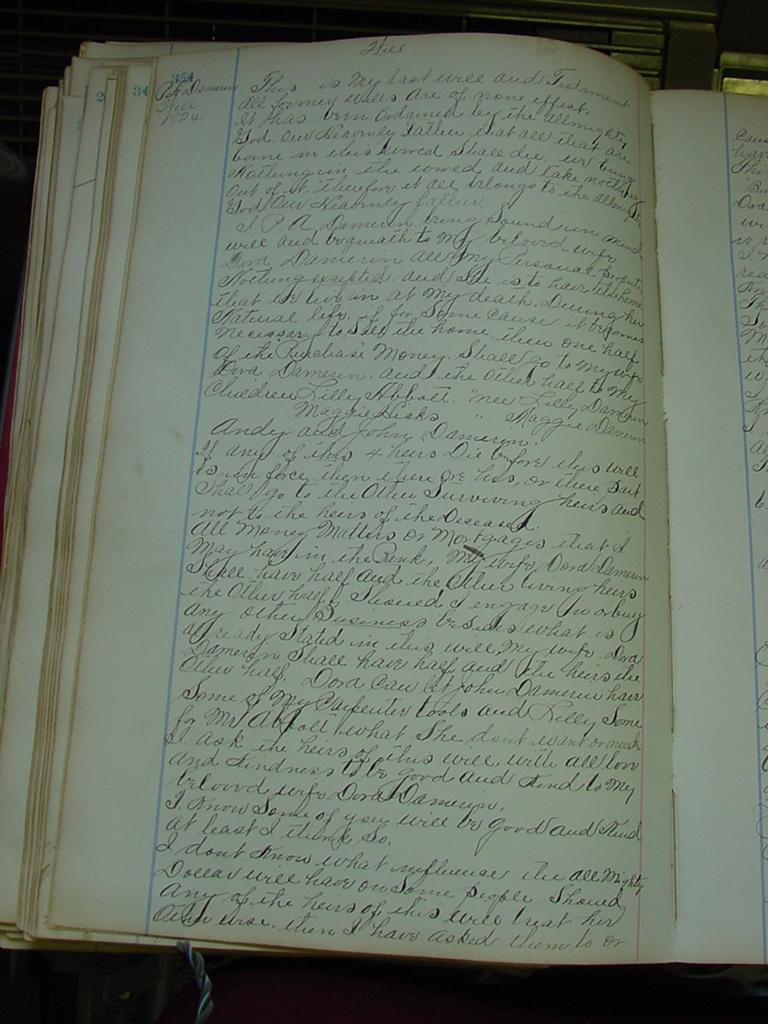 Will
354
P.A. Dameron
Will
1924
This is My last will and Testament
All formey wills are of none effect.
It has been Ordained by the Allmighty
God Our Heavenly Father that all that are
borne in this world Shall die, we bring
Nothing in the world and take nothing
Out of it. Therefore it all belongs to the allmighty
God Our Heavenly father.
I, P. A. Dameron being Sound in mind
will and bequeath to My beloved wife
Dora Dameron all My Personal Property
Nothing excepted. and She is to have the home
that we live in at My death. During her
Natural life, if for Some Cause it becomes
necessary to Sell the home, then one half
Of the Purchase Money Shall go to My wife
Dora Dameron. and the Other half to My
Children Lilly Abbott. nee Lilly Dameron
Maggie Hicks " Maggie Dameron
Andy and John Dameron.
If any of this 4 heirs Die before this will
is in force then there his, or there part
Shall go to the Other Surviving heirs and
not to the heirs of the Deceased.
All Money Matters or Mortgages that I
May have in the Bank, My wife Dora Dameron
Shall have half and the Other living heirs
the Other half. Should I engage in or buy
any Other Business besides what is
allready Stated in this will My wife Dora
Dameron Shall have half and the heirs the
Other half. Dora Can let John Dameron have
Some of My Carpenter tools and Lilly Some
for Mr Abbott what She dont want or need
I ask the heirs of this will, with all love
and Kindness to be good and Kind to My
beloved wife Dora Dameron.
I Know Some of you will be good and Kind
at least I think So.
I dont Know what influence the all Mighty
Dollar will have on Some people. Should
Any of the heirs of this will treat her
Other wise. then I have asked them to or